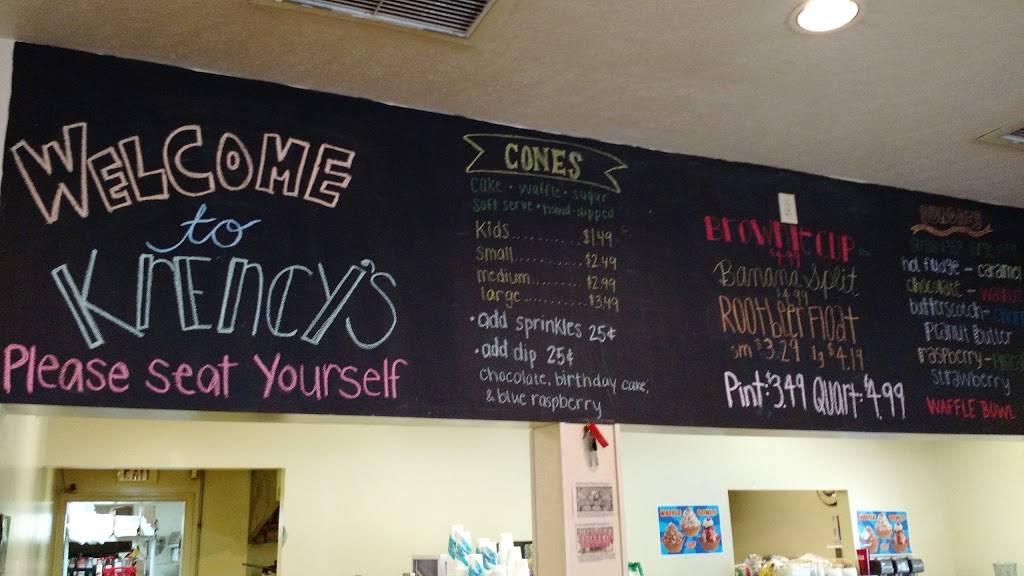 WELCOME
to
KRENCY'S
Please seat Yourself
CONES
cake • waffle • sugar
soft serve • hand-dipped
Kids........... $1.49
small............ $2.49
medium......... $2.99
large........... $3.49
• add sprinkles 25¢
• add dip 25¢
chocolate, birthday cake,
& blue raspberry
BROWNIE CUP
4.99
Banana Split
$4.99
ROOt beer Float
sm $3.29 lg $4.19
Pint $3.49 Quart $4.99
hot fudge - caramel
chocolate -
butterscotch -
Peanut Butter
raspberry -
strawberry
WAFFLE BOWL
EXIT
WAFFLE BOWLS